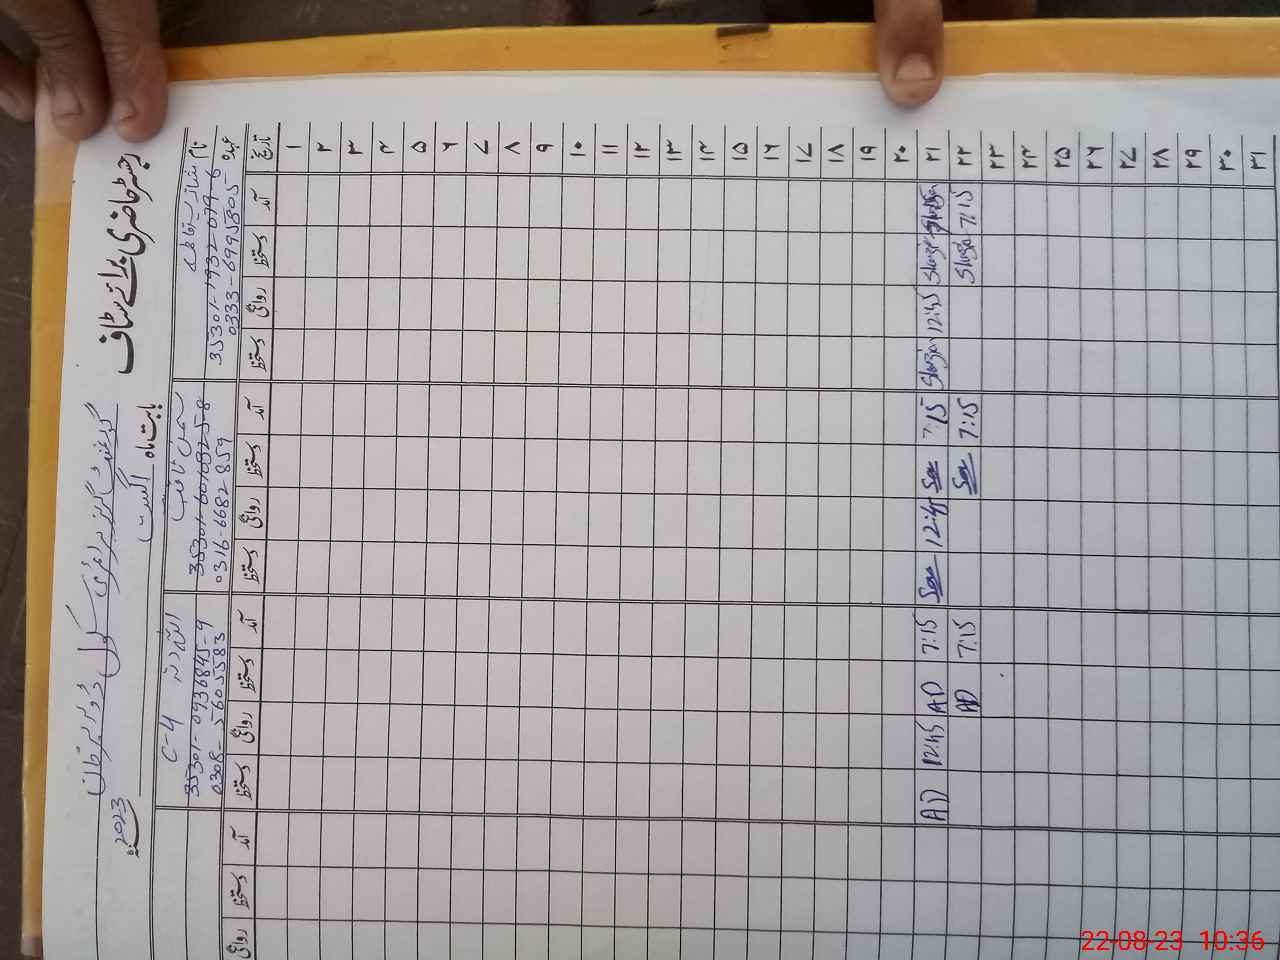 رجسٹر حاضری برائے سٹاف
گورنمنٹ گرلز پرائمری سکول
بابت ماہ اگست 2023ء
نام
عہدہ
35301-1932079-6
0333-6995805
35301-6016925-8
0316-6682859
C-4
35301-0936845-9
0308-5605583
تاریخ آمد دستخط روانگی دستخط آمد دستخط روانگی دستخط آمد دستخط روانگی دستخط آمد دستخط روانگی
۱
۲
۳
۴
۵
۶
۷
۸
۹
۱۰
۱۱
۱۲
۱۳
۱۴
۱۵
۱۶
۱۷
۱۸
۱۹
۲۰
۲۱ 12:45 7:15 12:45 7:15 AD 12:45 AD
۲۲ 7:15 7:15 7:15 AD
۲۳
۲۴
۲۵
۲۶
۲۷
۲۸
۲۹
۳۰
۳۱
22-08-23 10:36